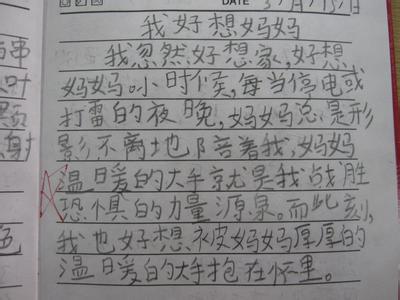 DATE
我好想妈妈
我忽然好想家,好想
妈妈。小时候,每当停电或
打雷的夜晚,妈妈总是形
影不离地陪着我,妈妈
温暖的大手就是我战胜
恐惧的力量源泉。而此刻,
我也好想被妈妈厚厚的
温暖的大手抱在怀里。